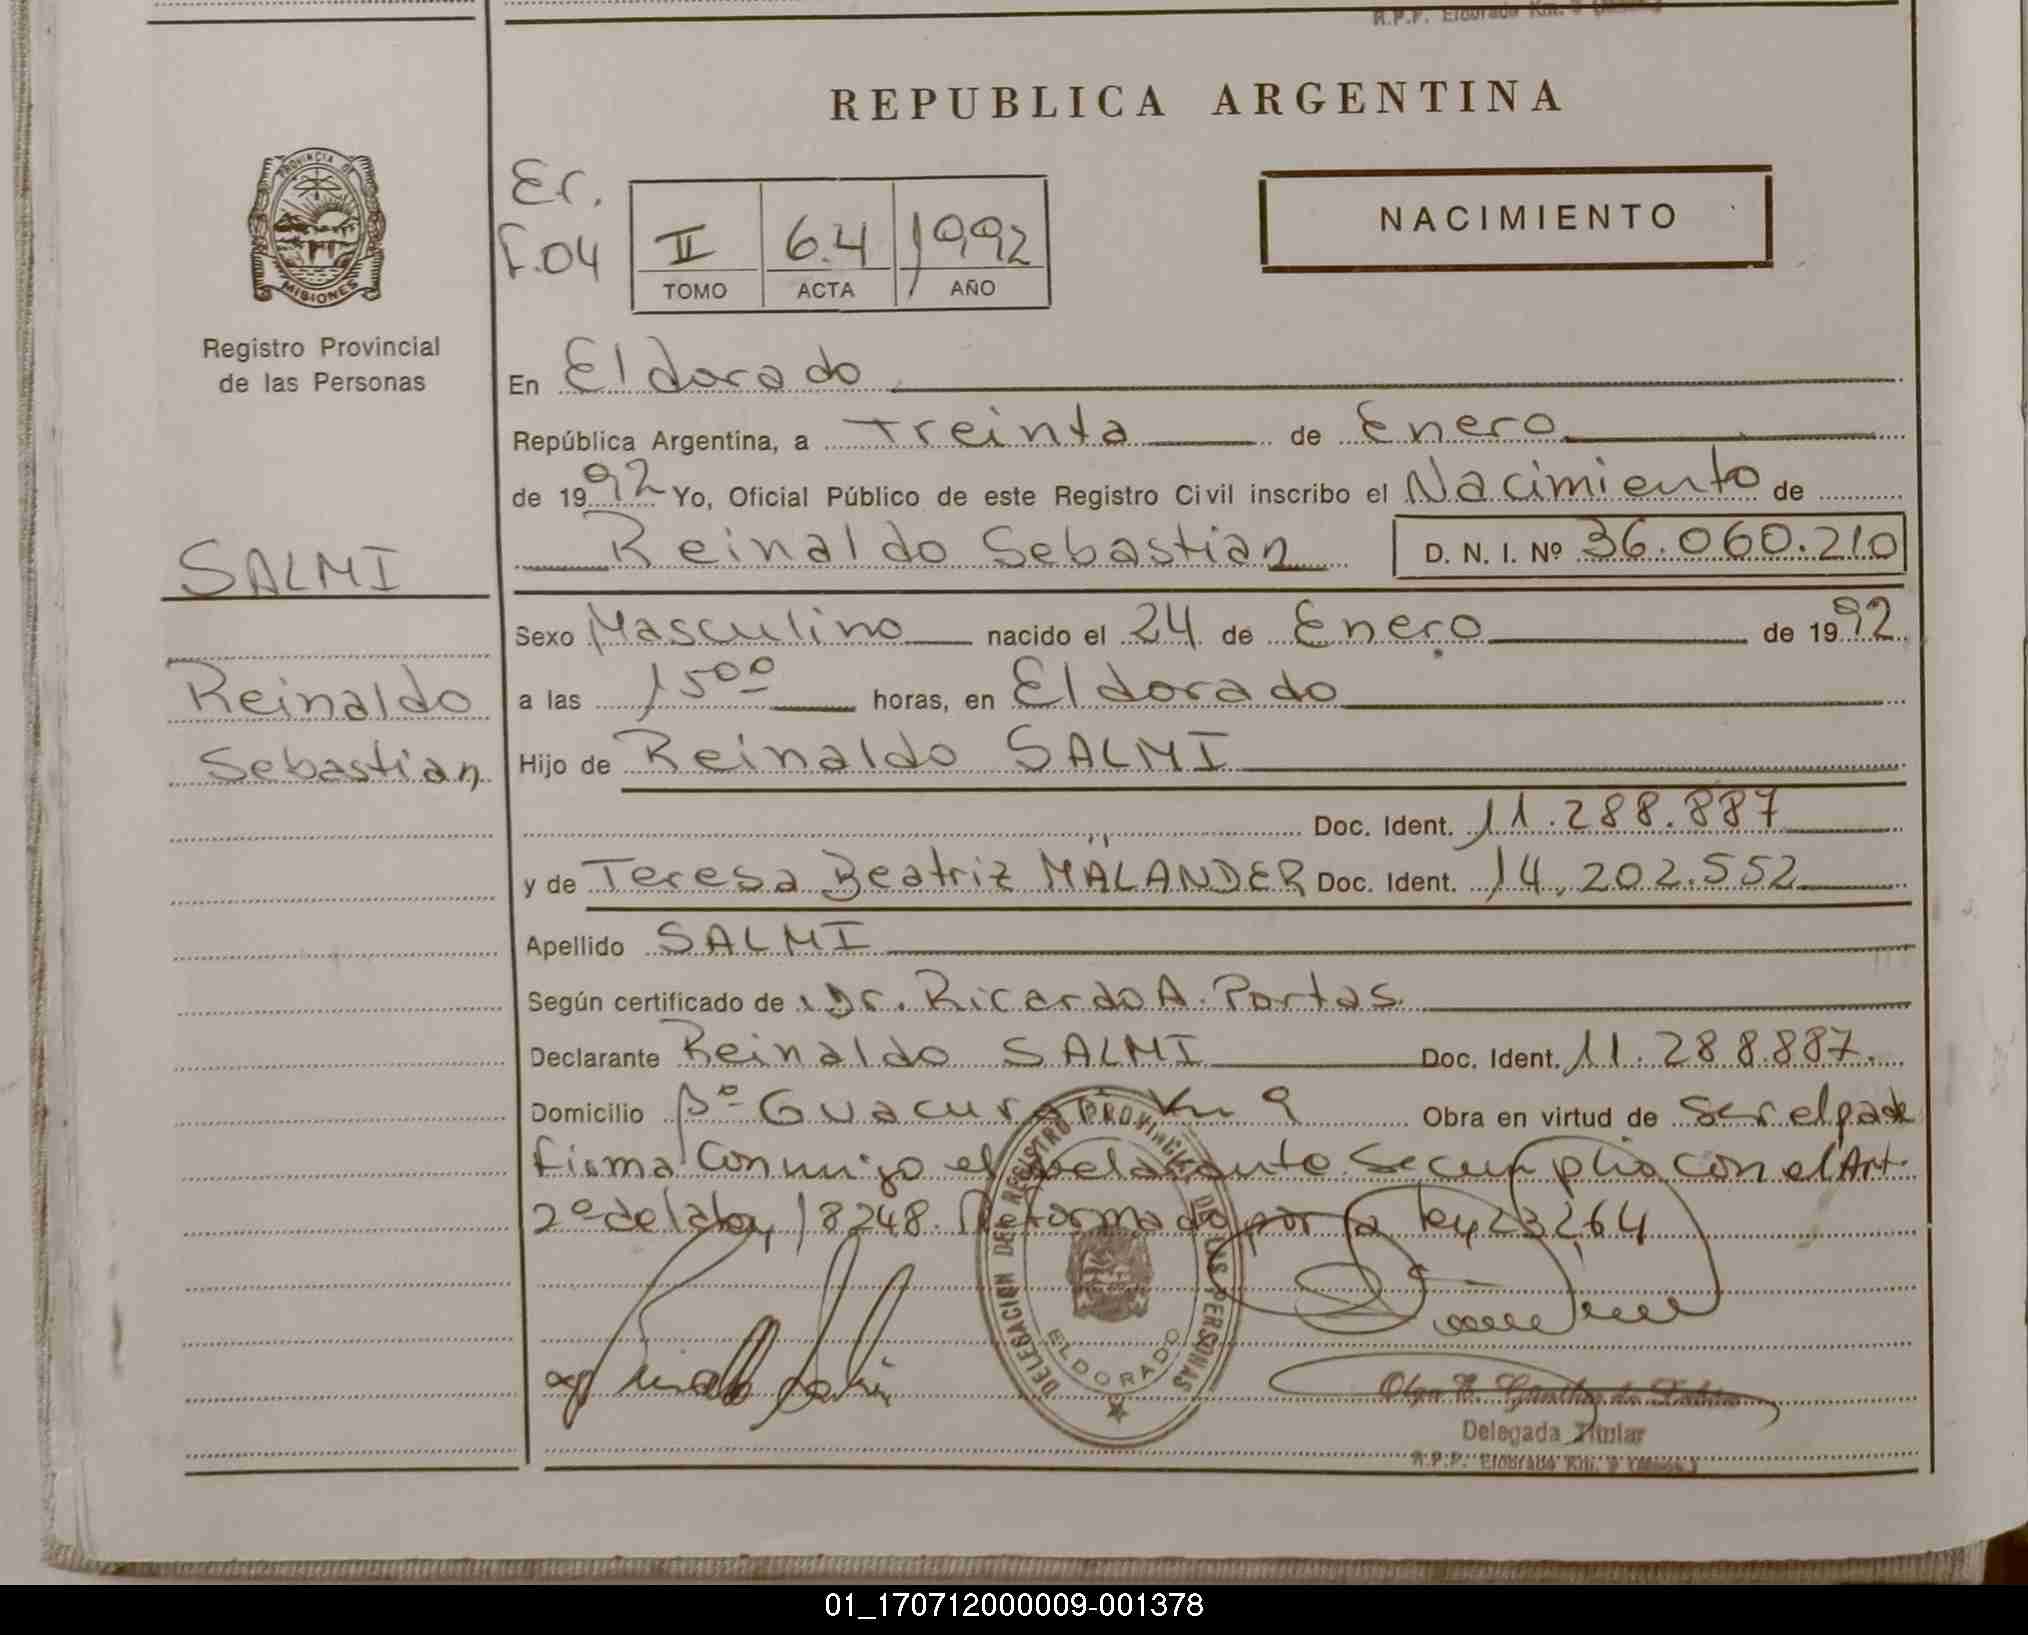 R.P.P. Eldorado Km. 9
REPUBLICA ARGENTINA
PROVINCIA DE
MISIONES
Registro Provincial
de las Personas
Er.
F.04
II 64 1992
TOMO ACTA AÑO
NACIMIENTO
En Eldorado
República Argentina, a Treinta de Enero
de 1992 Yo, Oficial Público de este Registro Civil inscribo el Nacimiento de
Reinaldo Sebastian D. N. I. Nº 36.060.210
SALMI
Reinaldo
Sebastian
Sexo Masculino nacido el 24 de Enero de 1992
a las 15⁰⁰ horas, en Eldorado
Hijo de Reinaldo SALMI
Doc. Ident. 11.288.887
y de Teresa Beatriz MÄLANDER Doc. Ident. 14.202.552
Apellido SALMI
Según certificado de Dr. Ricardo A. Portas
Declarante Reinaldo SALMI Doc. Ident. 11.288.887.
Domicilio Bº Guacurari Km 9 Obra en virtud de ser el padre
firma conmigo el declarante Se cumplio con el Art.
2º de la ley 18248. Reformado por la ley 23264
DELEGACION DEL REGISTRO PROVINCIAL DE LAS PERSONAS
ELDORADO
Delegada Titular
R.P.P. Eldorado Km. 9
01_170712000009-001378